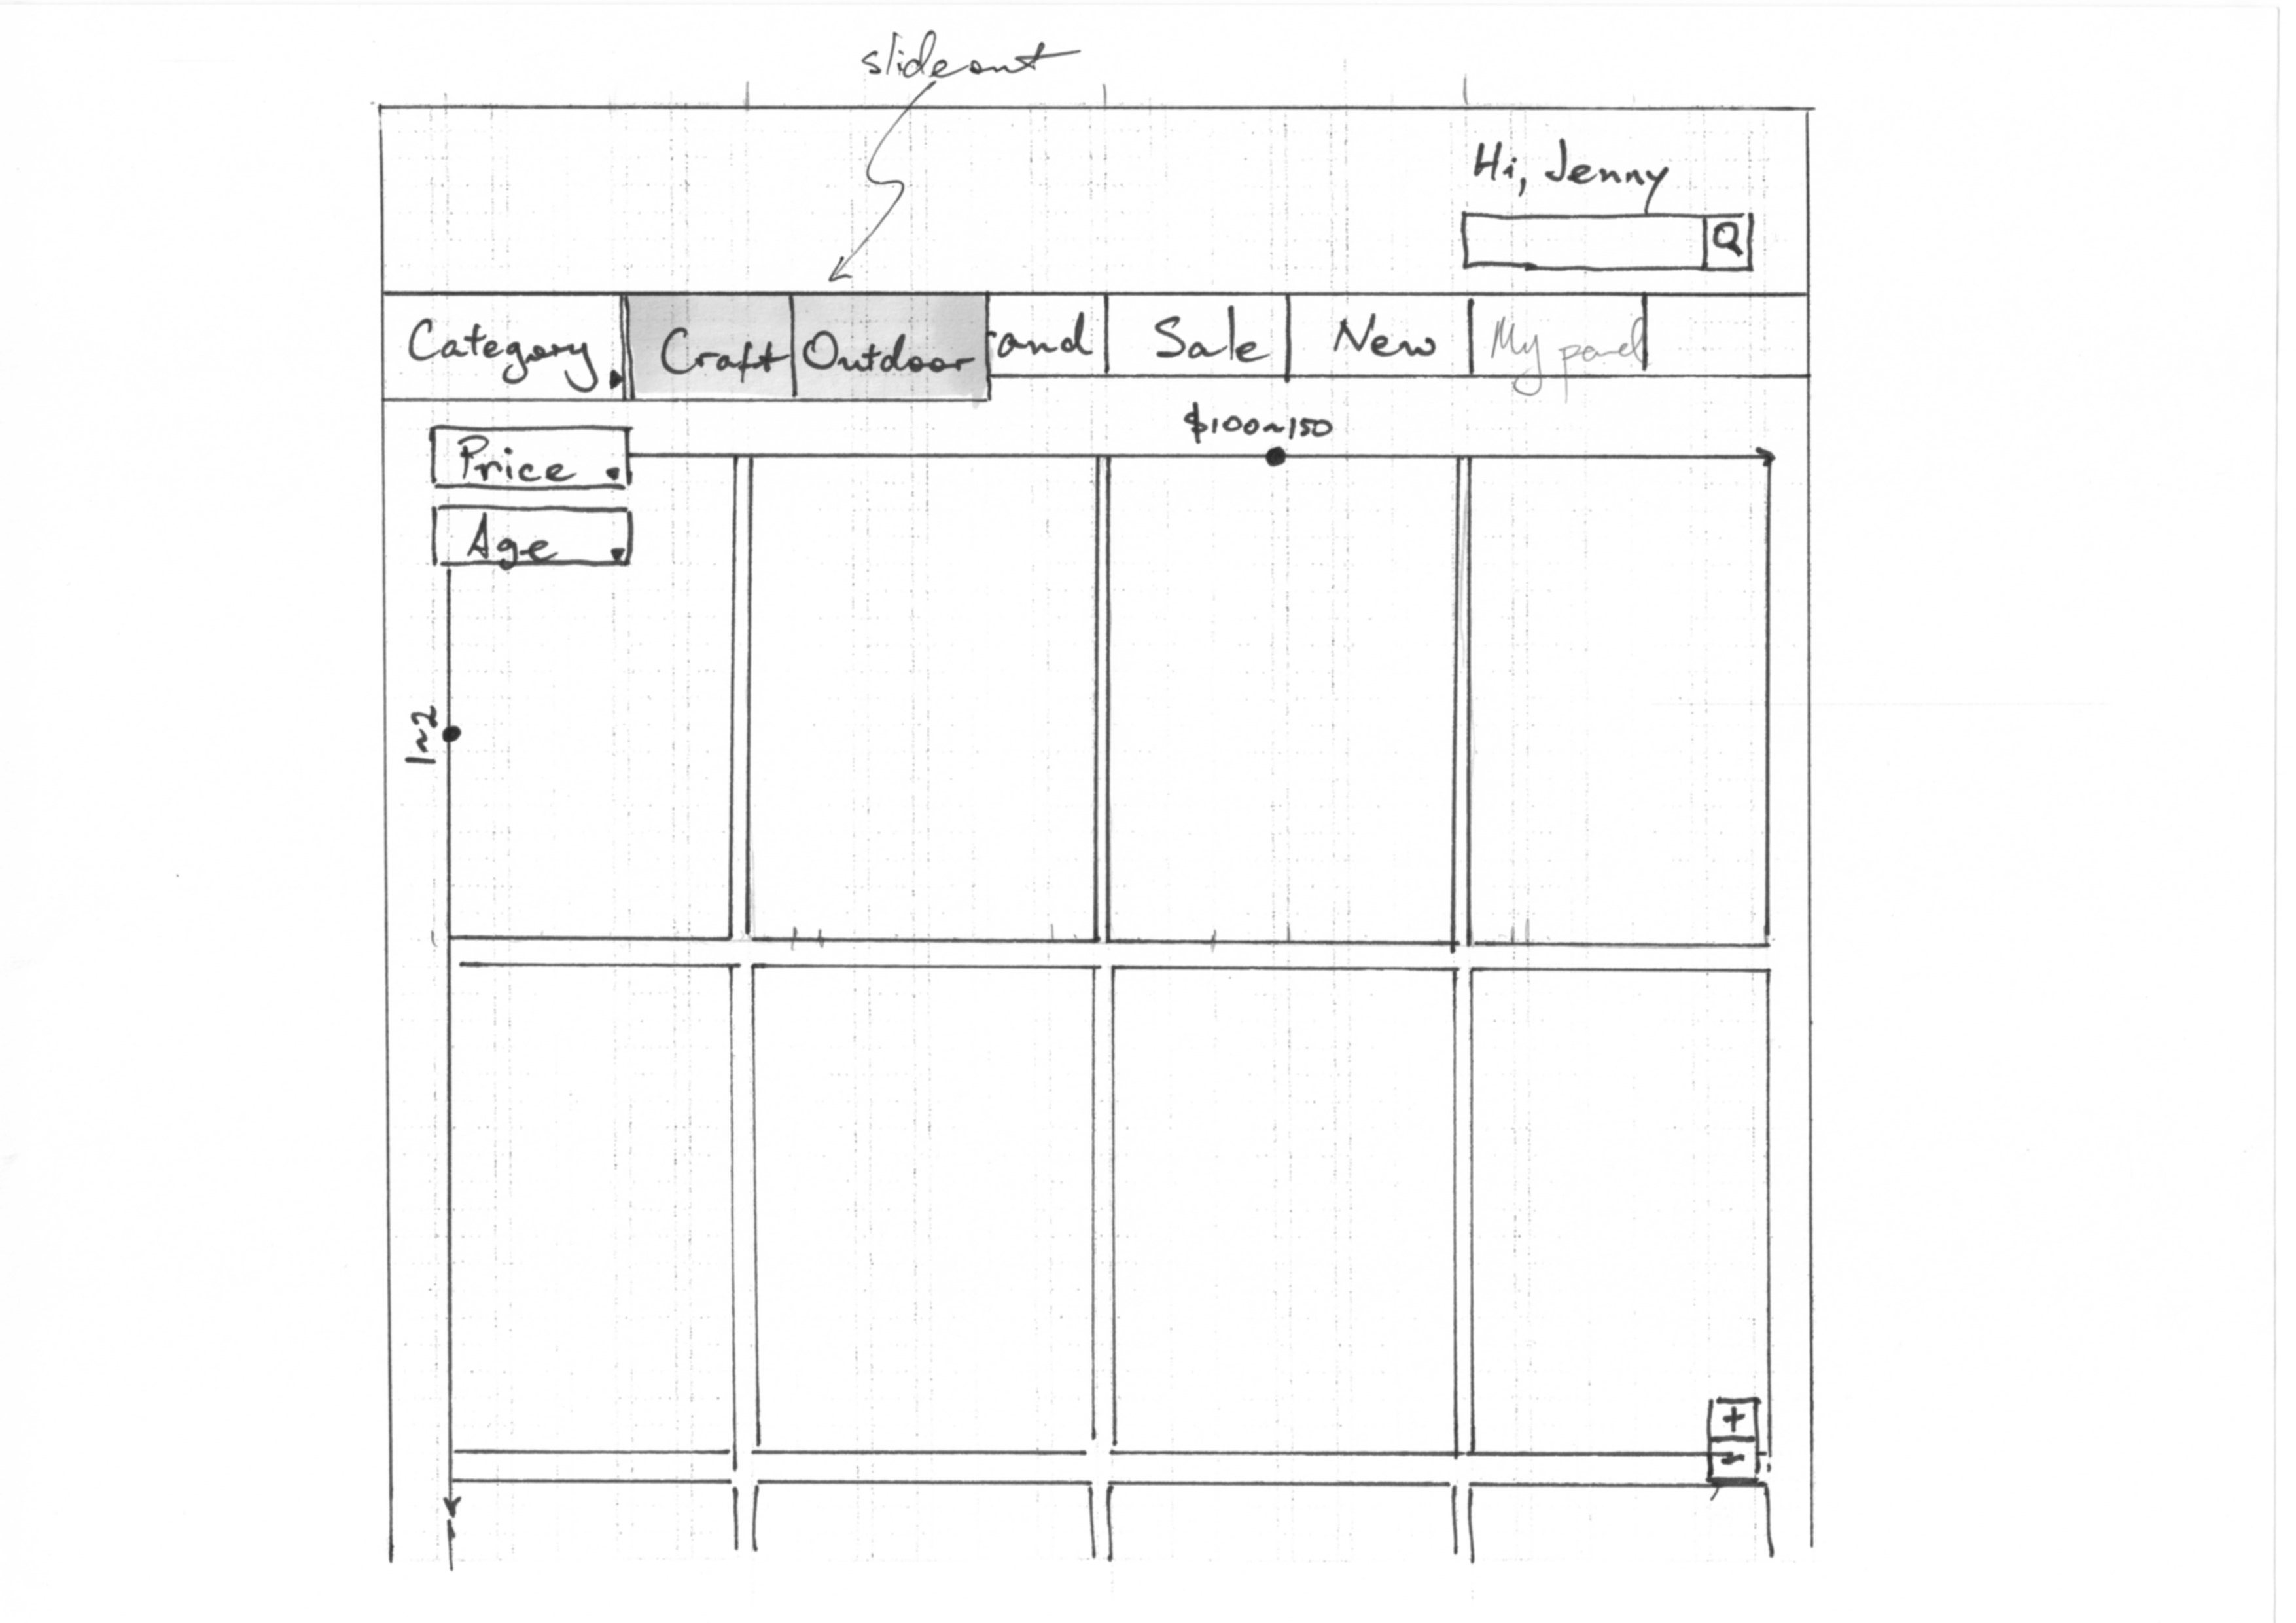 slideout
Hi, Jenny
Category Craft Outdoor rand Sale New My panel
$100~150
Price
Age
1~2
+
-